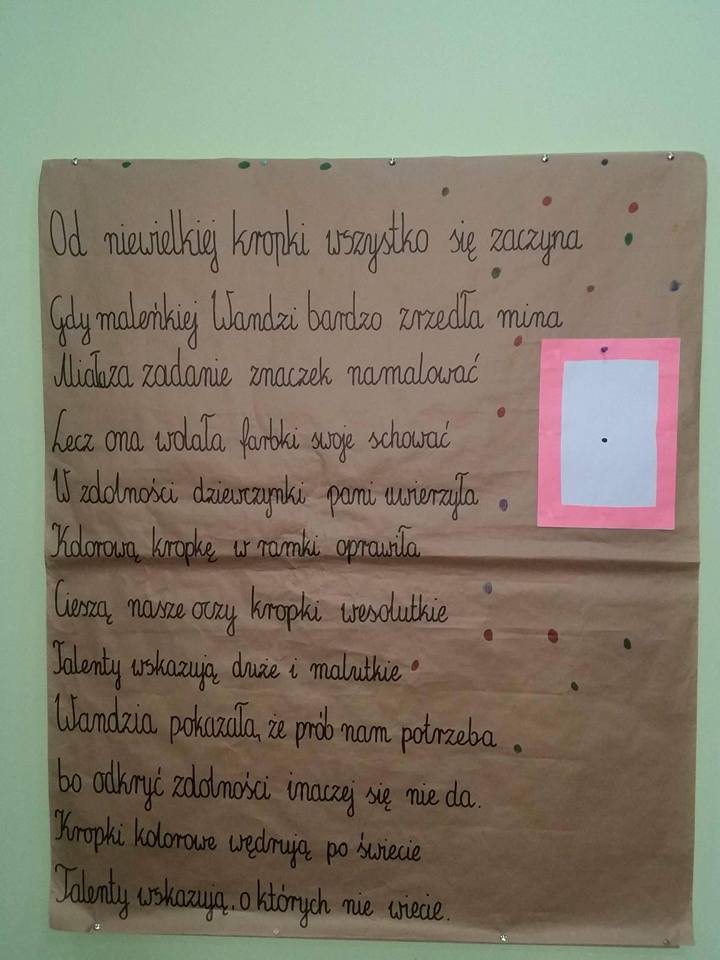 Od niewielkiej kropki wszystko się zaczyna
Gdy maleńkiej Wandzi bardzo zrzedła mina
Miała za zadanie znaczek namalować
Lecz ona wolała farbki swoje schować
W zdolności dziewczynki pani uwierzyła
Kolorową kropkę w ramki oprawiła
Cieszą nasze oczy kropki wesolutkie
Talenty wskazują duże i malutkie
Wandzia pokazała, że prób nam potrzeba
bo odkryć zdolności inaczej się nie da.
Kropki kolorowe wędrują po świecie
Talenty wskazują, o których nie wiecie.